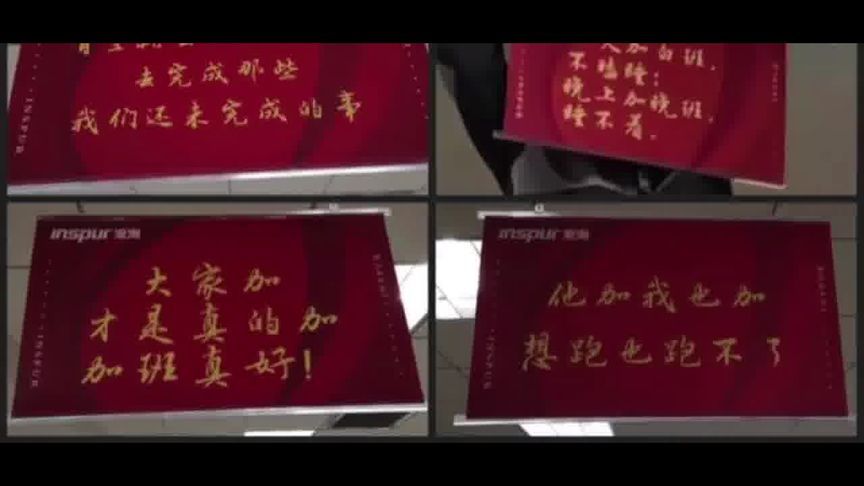 去完成那些
我们还未完成的事
INSPUR
加白班，
不瞌睡；
晚上加晚班，
睡不着。
inspur 浪潮
大家加
才是真的加
加班真好！
INSPUR
inspur 浪潮
他加我也加
想跑也跑不了
INSPUR